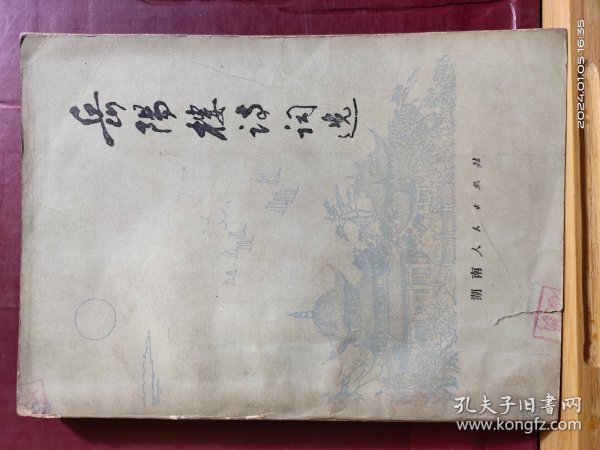 岳阳楼诗词选
湖南人民出版社
2024.01.05 16:35
孔夫子旧书网
www.kongfz.com